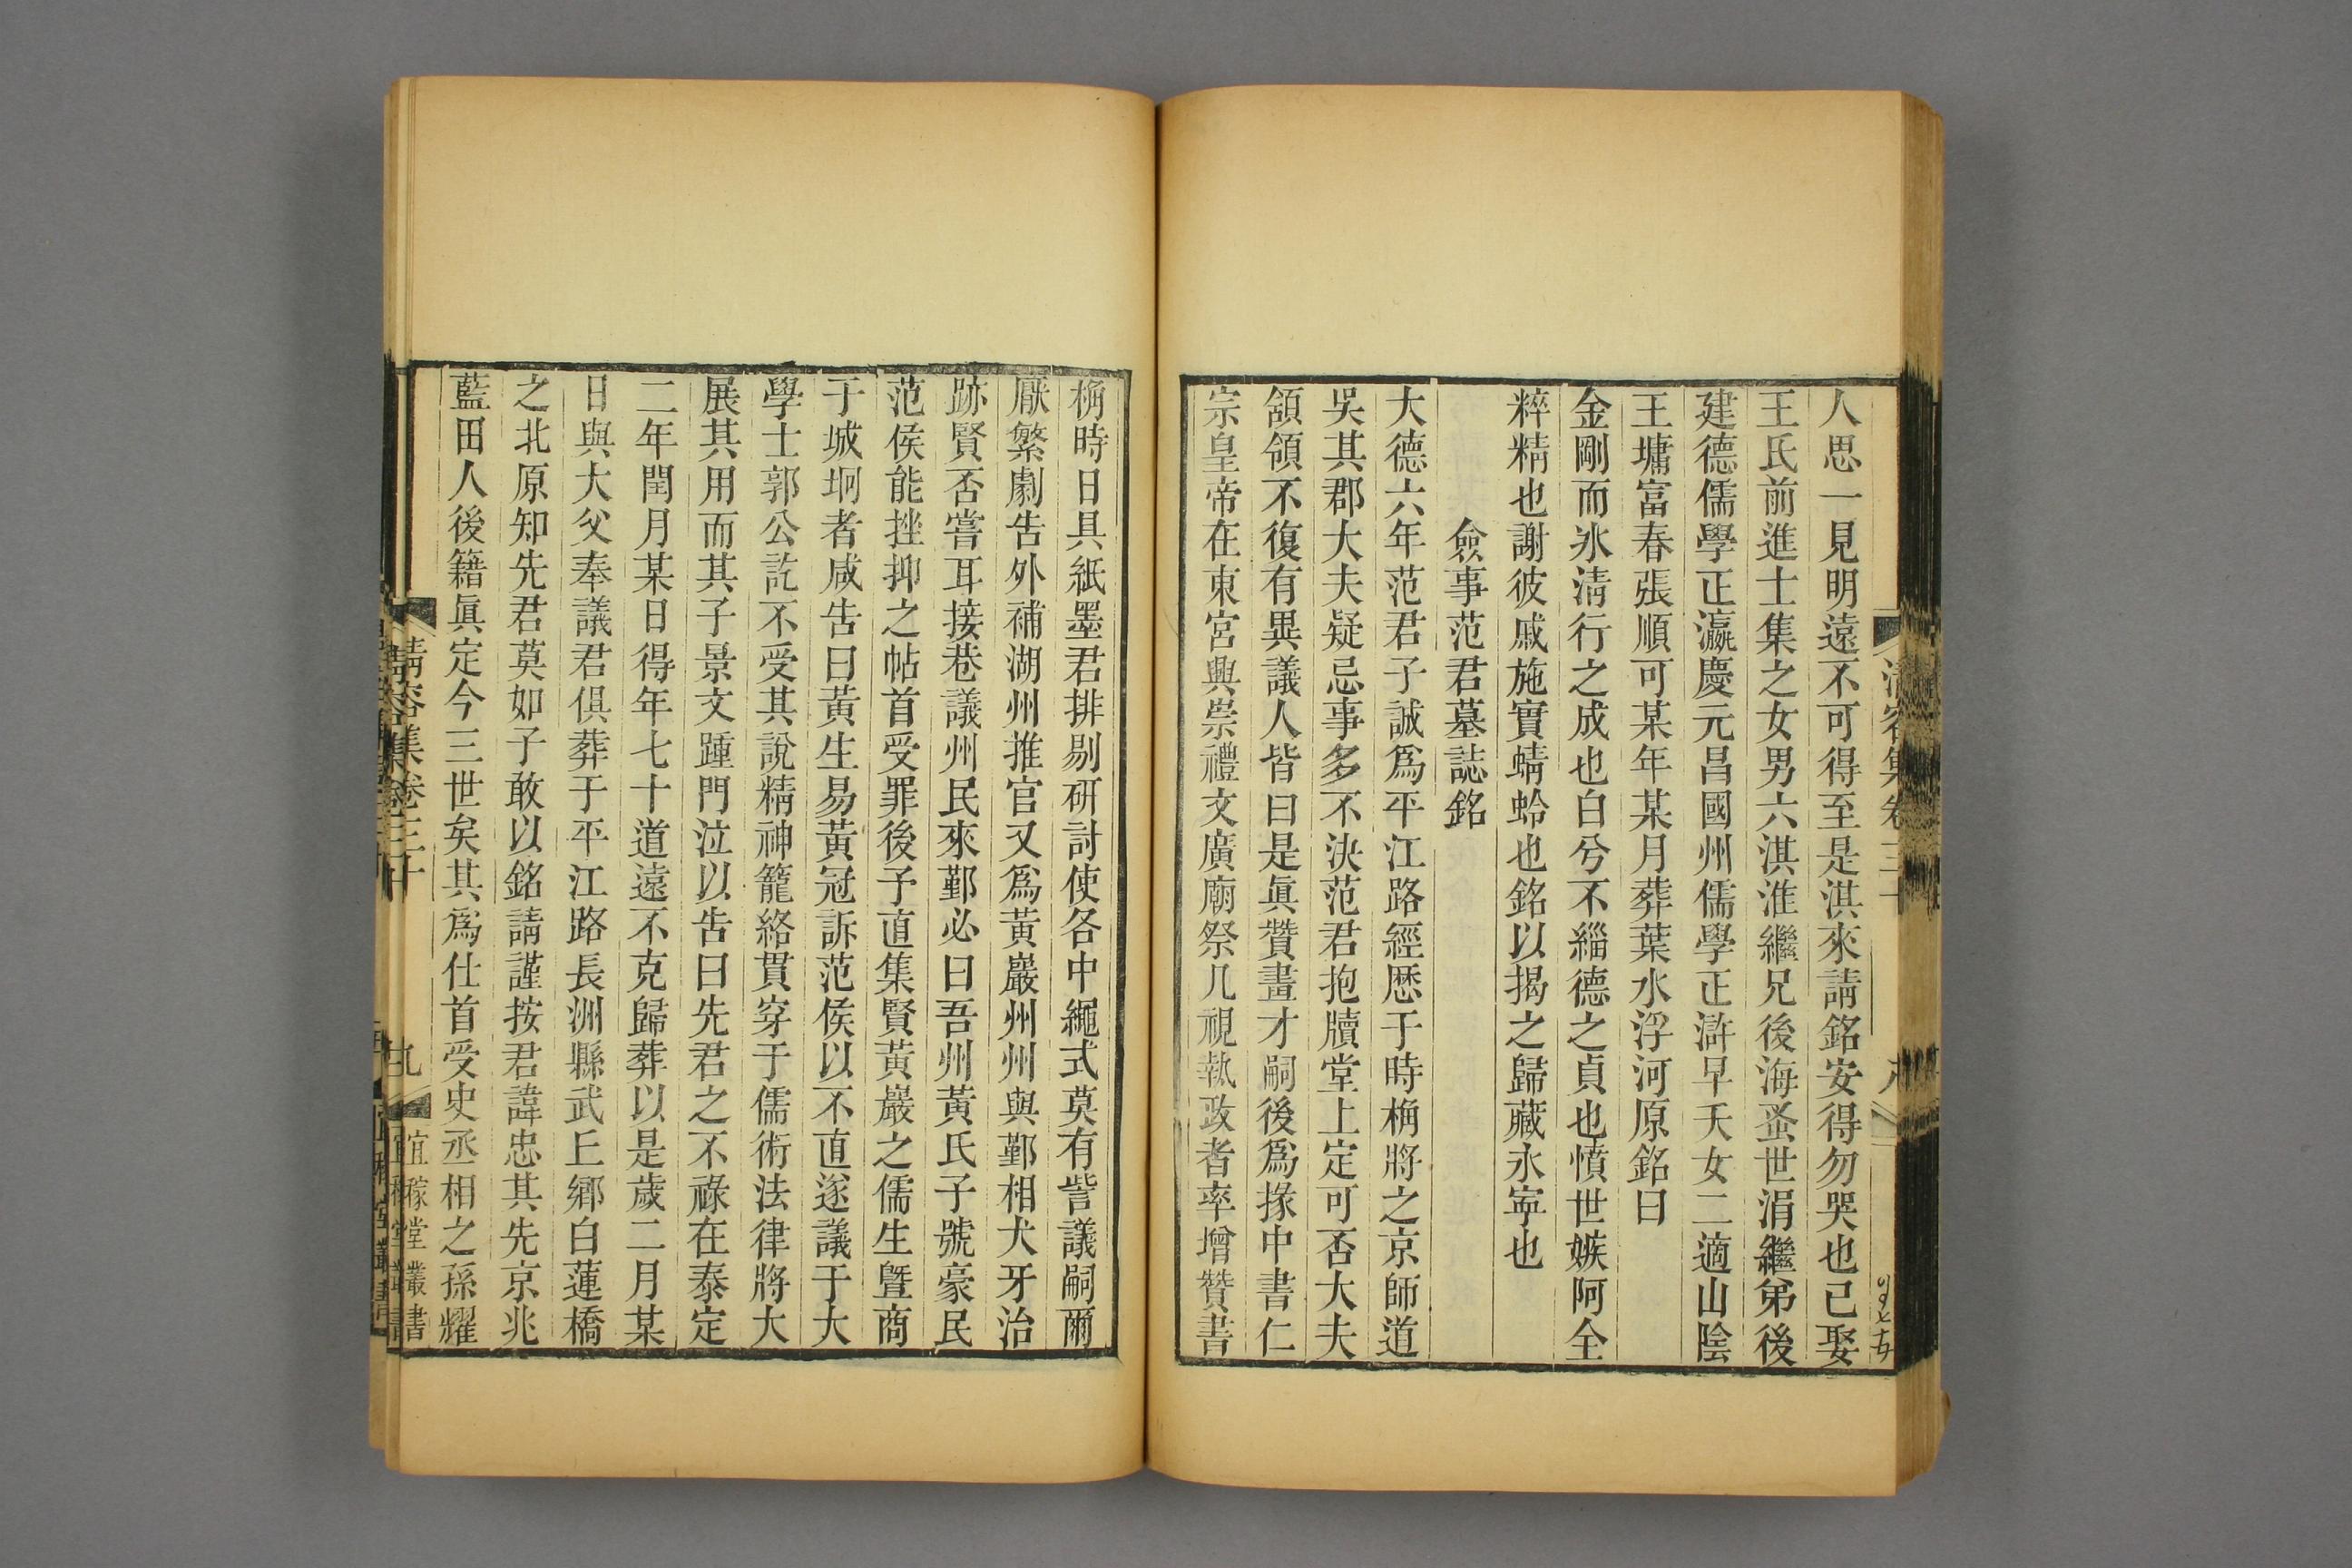 清容集卷三十
人思一見明遠不可得至是淇來請銘安得勿哭也已娶
王氏前進士集之女男六淇淮繼兄後海蚤世涓繼弟後
建德儒學正瀛慶元昌國州儒學正滸早夭女二適山陰
王墉富春張順可某年某月葬葉水浮河原銘曰
金剛而氷清行之成也白兮不緇德之貞也憤世嫉阿全
粹精也謝彼戚施實蜻蛉也銘以揭之歸藏永寧也
僉事范君墓誌銘
大德六年范君子誠爲平江路經歷于時桷將之京師道
吳其郡大夫疑忌事多不決范君抱牘堂上定可否大夫
頷領不復有異議人皆曰是眞贊畫才嗣後爲掾中書仁
宗皇帝在東宮興崇禮文廣廟祭几視執政者率增贊書
桷時日具紙墨君排剔研討使各中繩式莫有訾議嗣爾
厭繁劇告外補湖州推官又爲黃巖州州與鄞相犬牙治
跡賢否嘗耳接巷議州民來鄞必曰吾州黃氏子號豪民
范侯能挫抑之帖首受罪後予直集賢黃巖之儒生曁商
于城坰者咸告曰黃生易黃冠訴范侯以不直遂議于大
學士郭公訖不受其說精神籠絡貫穿于儒術法律將大
展其用而其子景文踵門泣以告曰先君之不祿在泰定
二年閏月某日得年七十道遠不克歸葬以是歲二月某
日與大父奉議君俱葬于平江路長洲縣武丘鄉白蓮橋
之北原知先君莫如子敢以銘請謹按君諱忠其先京兆
藍田人後籍眞定今三世矣其爲仕首受史丞相之孫耀
清容集卷三十
九
宜稼堂叢書